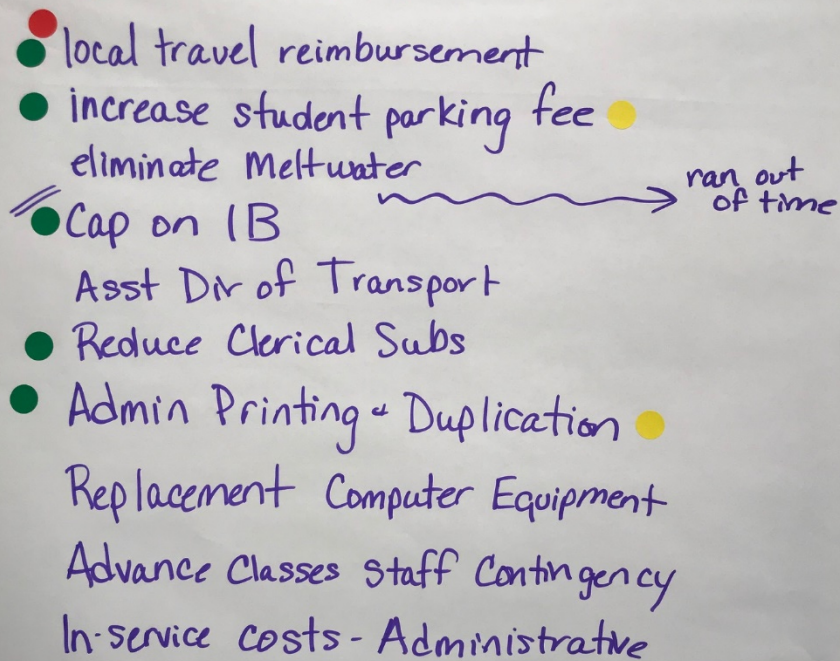 local travel reimbursement
increase student parking fee
eliminate Meltwater
ran out
of time
Cap on IB
Asst Dir of Transport
Reduce Clerical Subs
Admin Printing & Duplication
Replacement Computer Equipment
Advance Classes Staff Contingency
In-service costs - Administrative